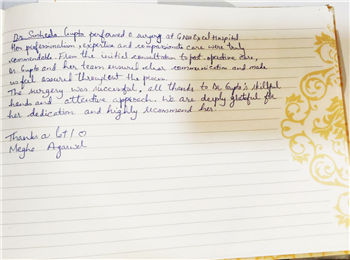 Dr Susheela Gupta performed a surgery at GNH Excel Hospital
Her professionalism, expertise and compassionate care were truly
commendable. From the initial consultation to post operative care,
Dr Gupta and her team ensured clear communication and made
us feel assured throughout the process.
The surgery was successful, all thanks to Dr Gupta's skillful
hands and attentive approach. We are deeply grateful for
her dedication and highly recommend her.
Thanks a lot
Megha Agarwal